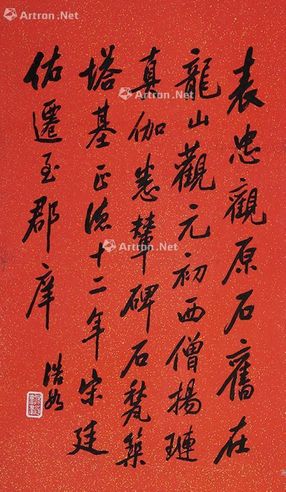 表忠觀原石舊在
龍山觀元初西僧楊璉
真伽悉輦碑石甃築
塔基正德十二年宋廷
佑遷至郡庠
浩如
Artron.Net
Artron.Net
Artron.Net
Artron.Net